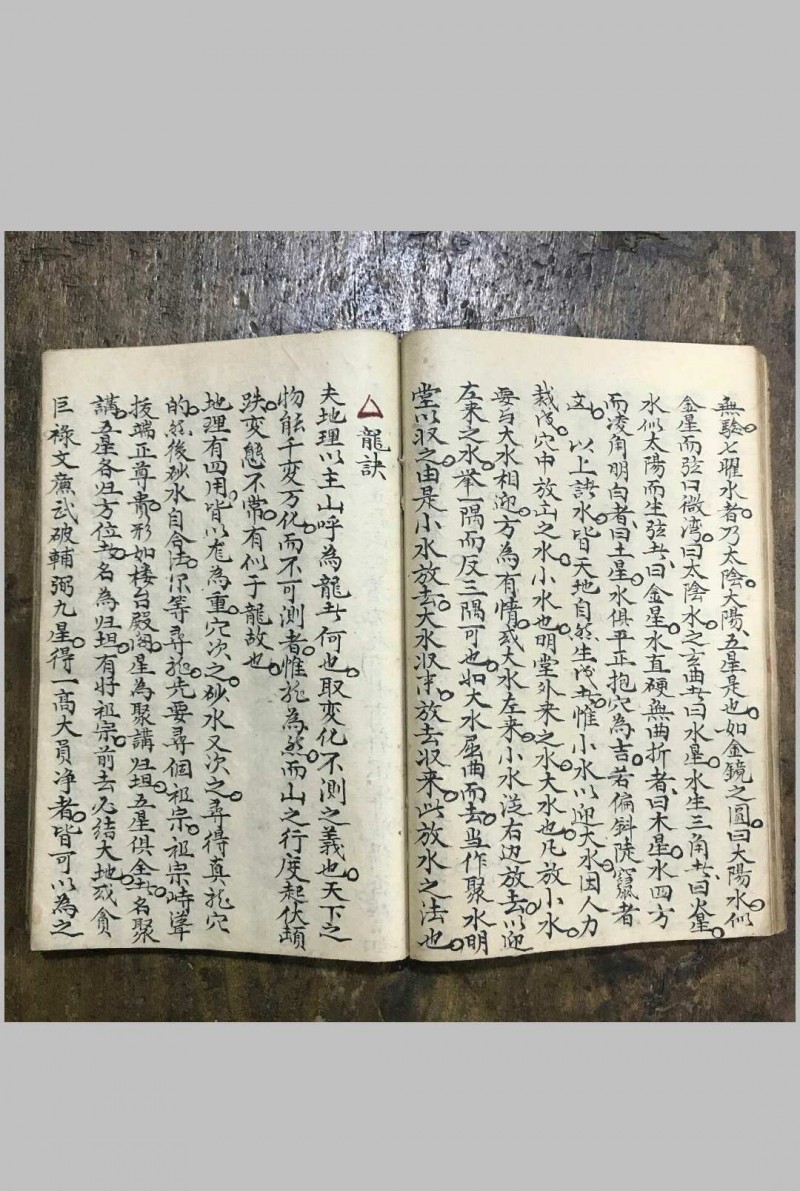 無驗七曜水者乃太陰太陽五星是也如金鏡之圓曰太陽水似
金星而弦曰微湾曰太陰水之玄曲者曰水星水生三角者曰火星
水似太陽而生弦者曰金星水直硬無曲折者曰木星水四方
而凌角明白者曰土星水俱平正抱穴為吉若偏斜陡竄者
以上訣水皆天地自然生成者惟小水以迎大水因人力
裁成穴中放出之水小水也明堂外来之水大水也凡放小水
要与大水相迎方為有情或大水左来小水从右边放去以迎
左来之水举一隅而反三隅可也如大水屈曲而去当作聚水明
堂以収之由是小水放去大水収来放去収来此放水之法也
龍訣
夫地理以主山呼為龍者何也取变化不測之義也天下之
物能千变万化而不可測者惟龙為然而山之行度起伏頓
跌变態不常有似于龍故也
地理有四用皆以龙為重穴次之砂水又次之尋得真龙穴
的然後砂水自合法尔等尋龙先要尋個祖宗祖宗峙聳
拔端正尊贵形如楼台殿阁星為聚講归垣五星俱全者名聚
講五星各归方位者名為归垣有好祖宗前去必结大地或貪
巨祿文廉武破輔弼九星得一高大員净者皆可以為之